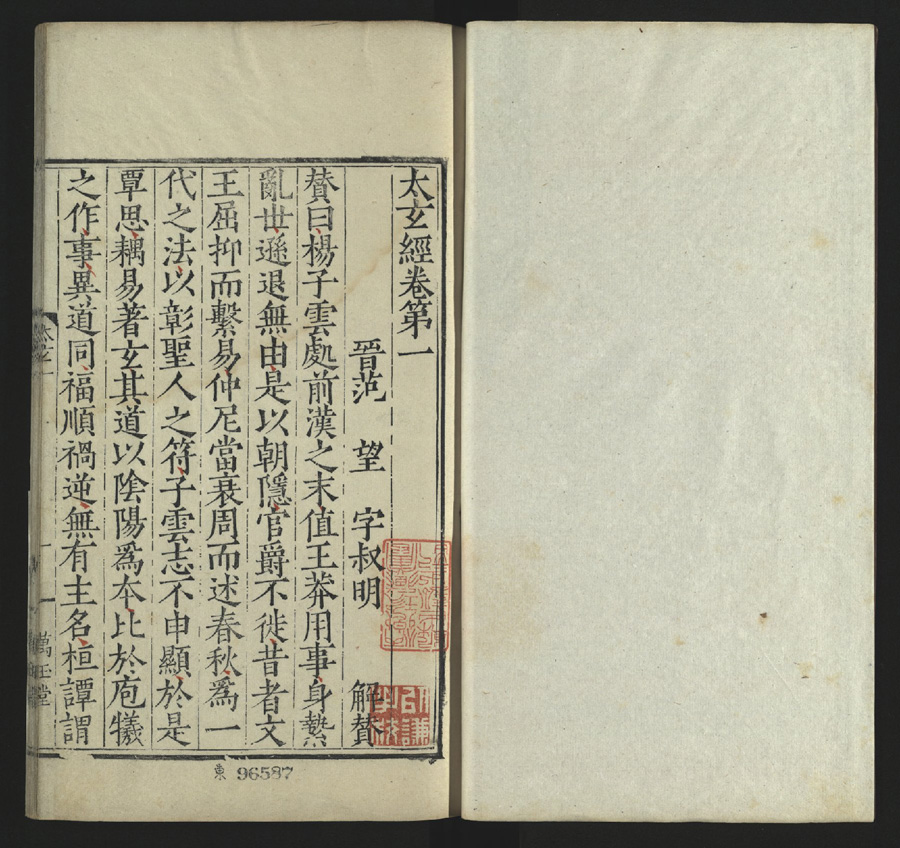 太玄經卷第一
晉范 望 字叔明 解贊
贊曰楊子雲處前漢之末值王莽用事身縶
亂世遜退無由是以朝隱官爵不徙昔者文
王屈抑而繫易仲尼當衰周而述春秋爲一
代之法以彰聖人之符子雲志不申顯於是
覃思耦易著玄其道以陰陽爲本比於庖犧
之作事異道同福順禍逆無有主名桓譚謂
太玄一
萬玉堂
東 96587